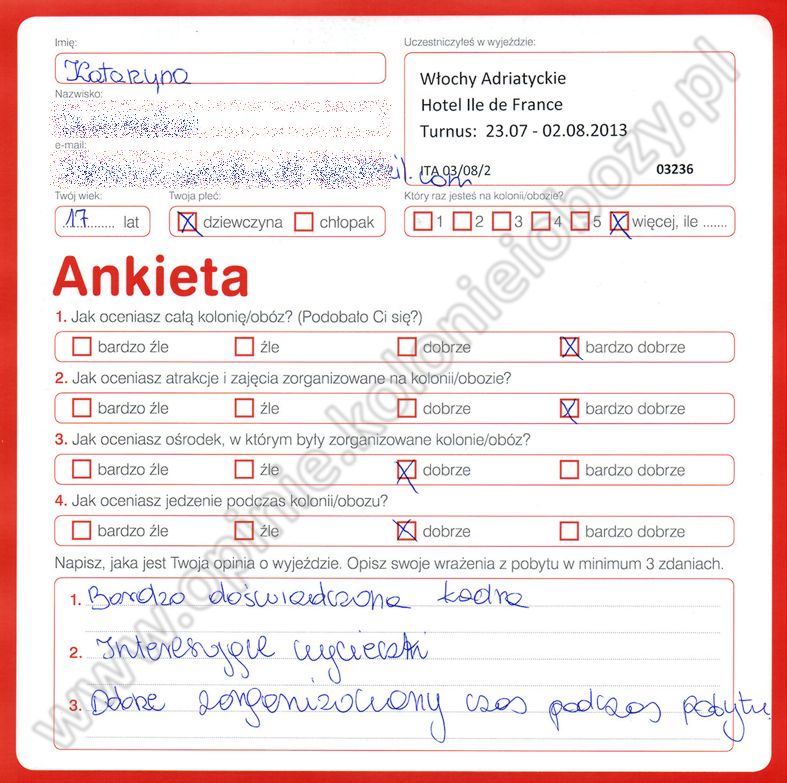 Imię:
Uczestniczyłeś w wyjeździe:
Katarzyna
Włochy Adriatyckie
Nazwisko:
Hotel Ile de France
Turnus: 23.07 - 02.08.2013
e-mail:
il.com
ITA 03/08/2
03236
Twój wiek:
Twoja płeć:
Który raz jesteś na kolonii/obozie?
17 lat
dziewczyna
chłopak
1 2 3 4 5 więcej, ile .......
Ankieta
1. Jak oceniasz całą kolonię/obóz? (Podobało Ci się?)
bardzo źle źle dobrze bardzo dobrze
2. Jak oceniasz atrakcje i zajęcia zorganizowane na kolonii/obozie?
bardzo źle źle dobrze bardzo dobrze
3. Jak oceniasz ośrodek, w którym były zorganizowane kolonie/obóz?
bardzo źle źle dobrze bardzo dobrze
4. Jak oceniasz jedzenie podczas kolonii/obozu?
bardzo źle źle dobrze bardzo dobrze
Napisz, jaka jest Twoja opinia o wyjeździe. Opisz swoje wrażenia z pobytu w minimum 3 zdaniach.
1. Bardzo doświadczona kadra
2. Interesujące wycieczki
3. Dobrze zorganizowany czas podczas pobytu.
www.opinie.kolonieiobozy.pl